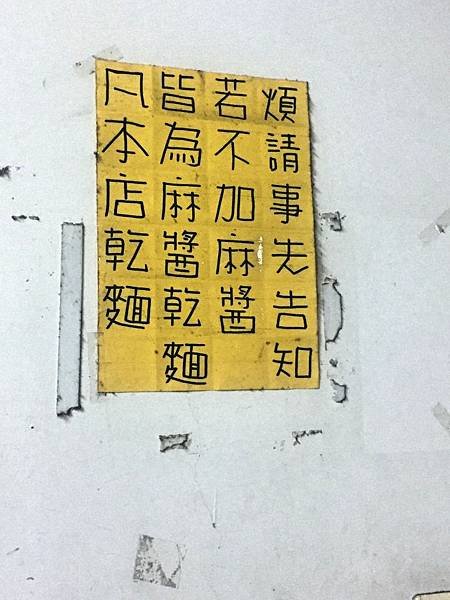 凡本店乾麵
皆為麻醬乾麵
若不加麻醬
煩請事先告知